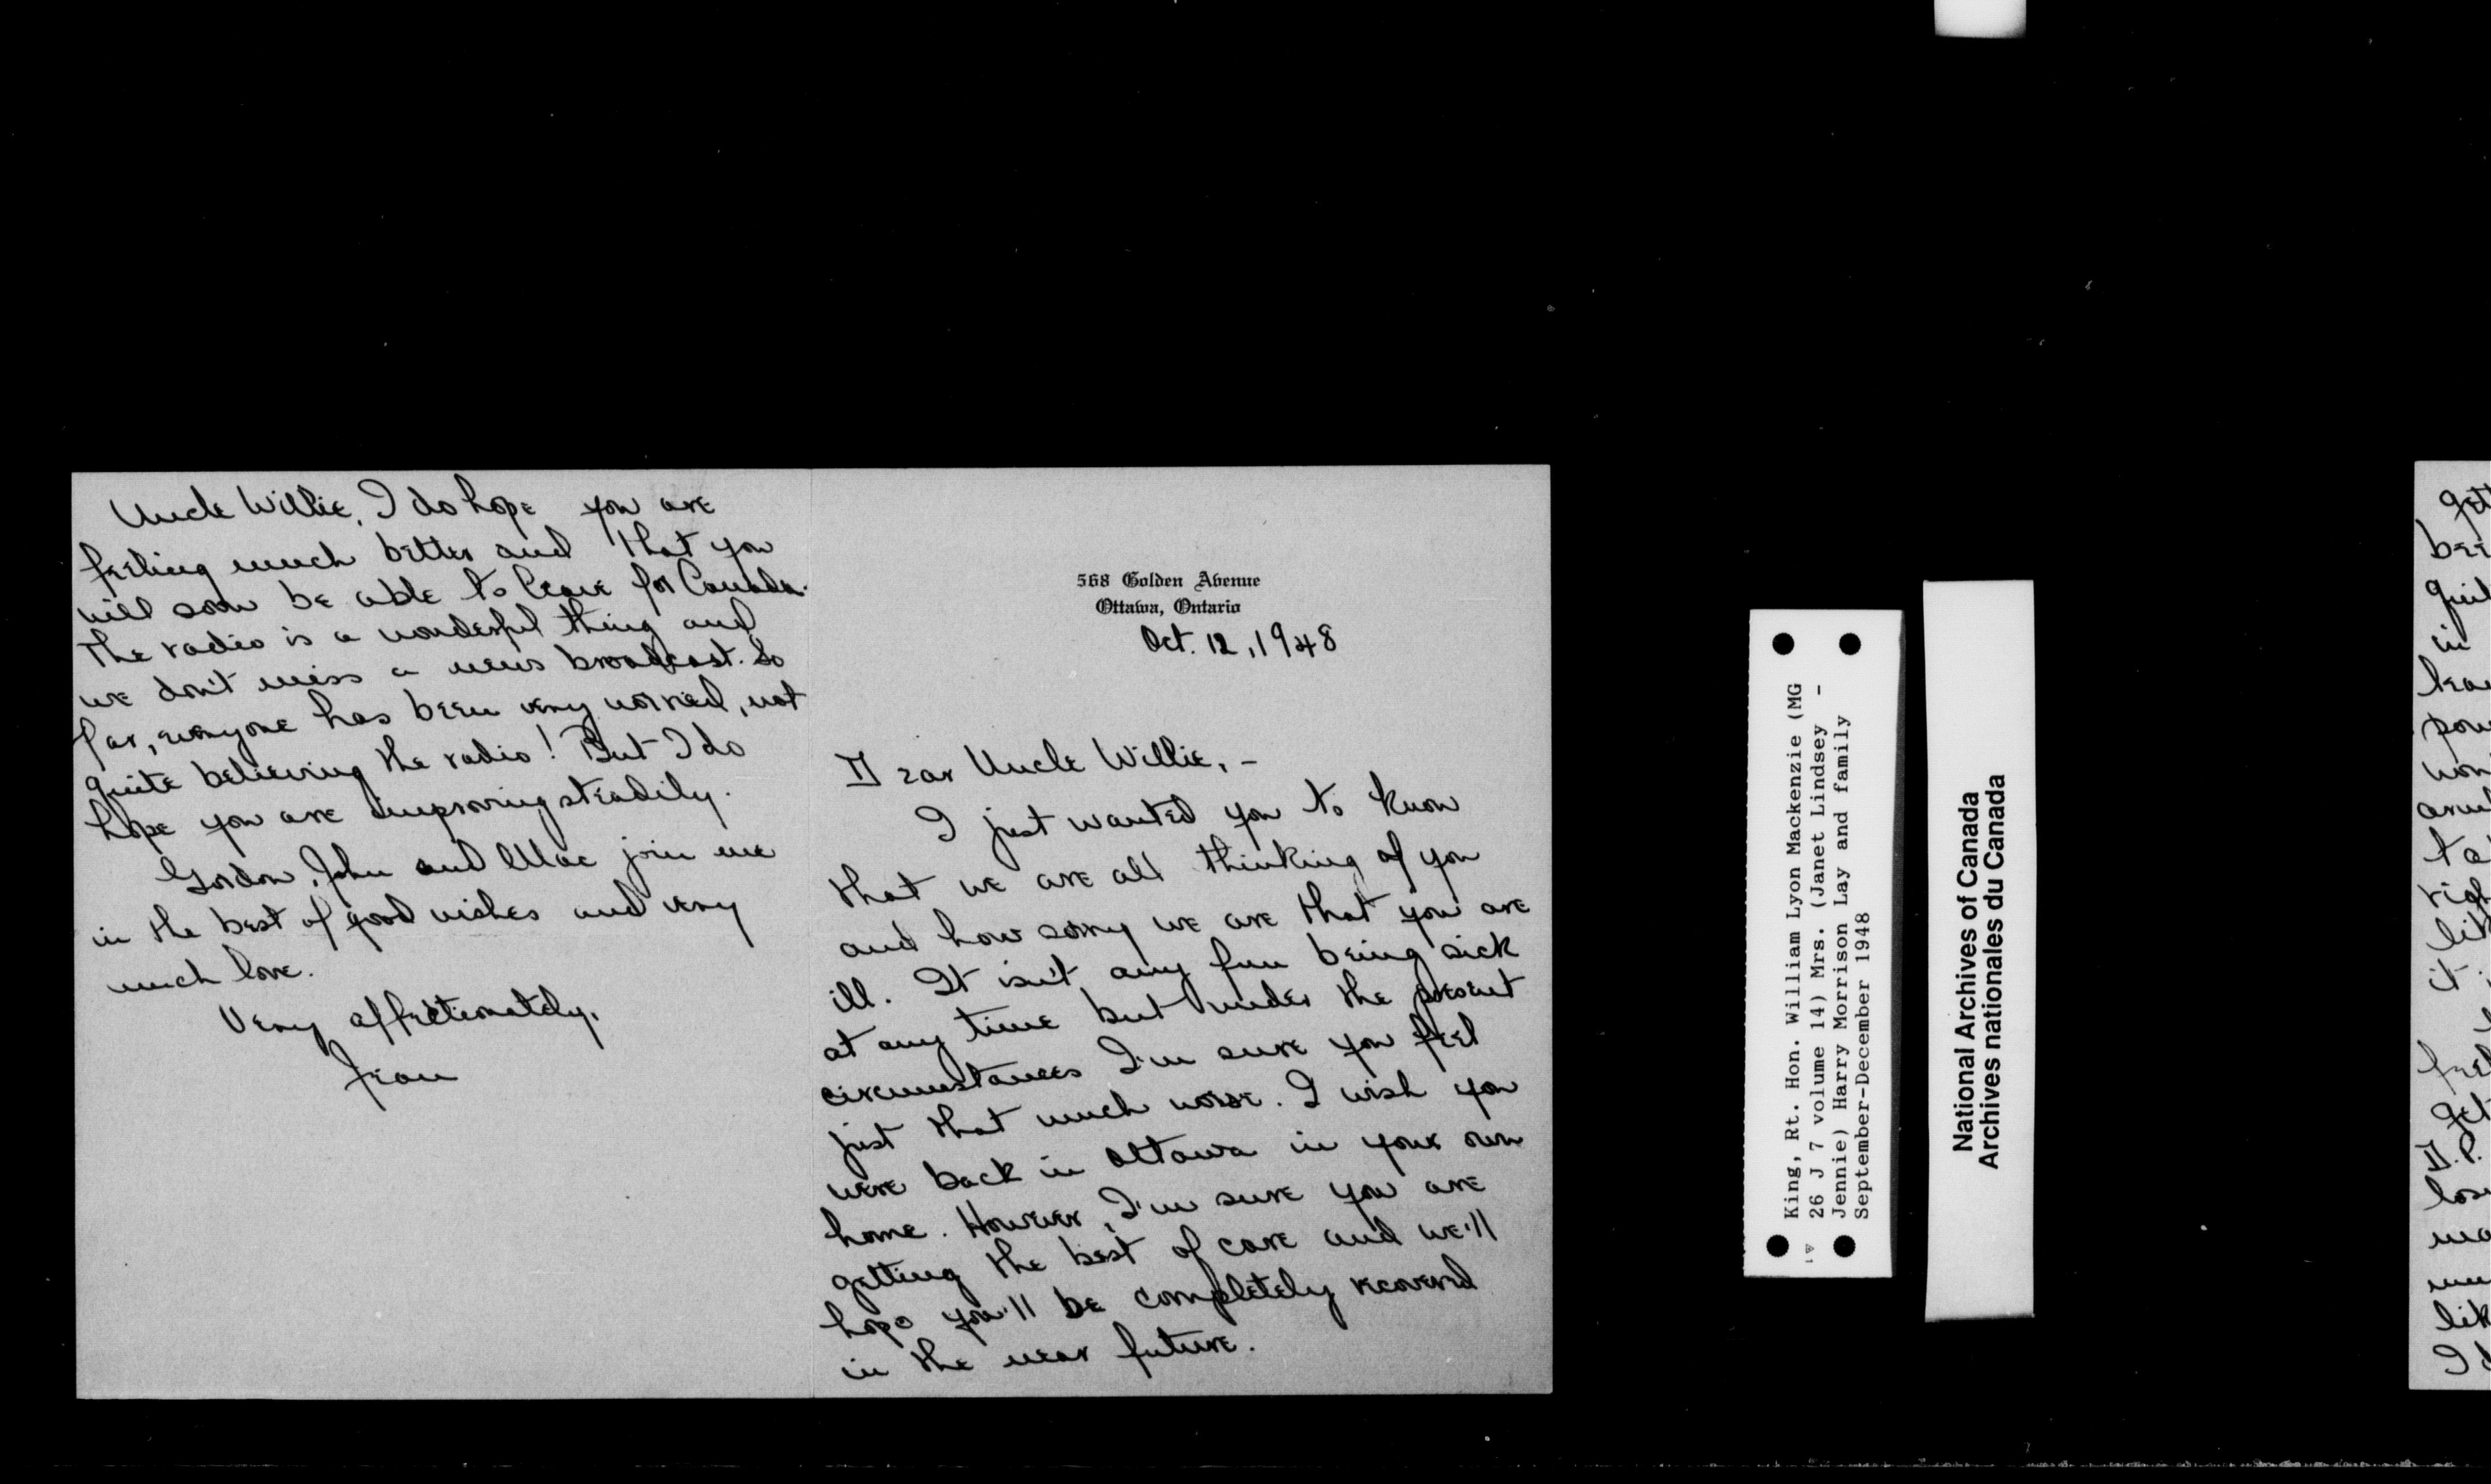 Uncle Willie, I do hope you are
feeling much better and that you
will soon be able to leave for Canada.
The radio is a wonderful thing and
we don't miss a news broadcast. So
far, everyone has been very worried, not
quite believing the radio! But I do
hope you are improving steadily.
Gordon, John and Mac join me
in the best of good wishes and very
much love.
Very affectionately,
Jean
568 Golden Avenue
Ottawa, Ontario
Oct. 12, 1948
Dear Uncle Willie, -
I just wanted you to know
that we are all thinking of you
and how sorry we are that you are
ill. It isn't any fun being sick
at any time but under the present
circumstances I'm sure you feel
just that much worse. I wish you
were back in Ottawa in your own
home. However, I'm sure you are
getting the best of care and we'll
hope you'll be completely recovered
in the near future.
King, Rt. Hon. William Lyon Mackenzie (MG
26 J 7 volume 14) Mrs. (Janet Lindsey -
Jennie) Harry Morrison Lay and family
September-December 1948
National Archives of Canada
Archives nationales du Canada